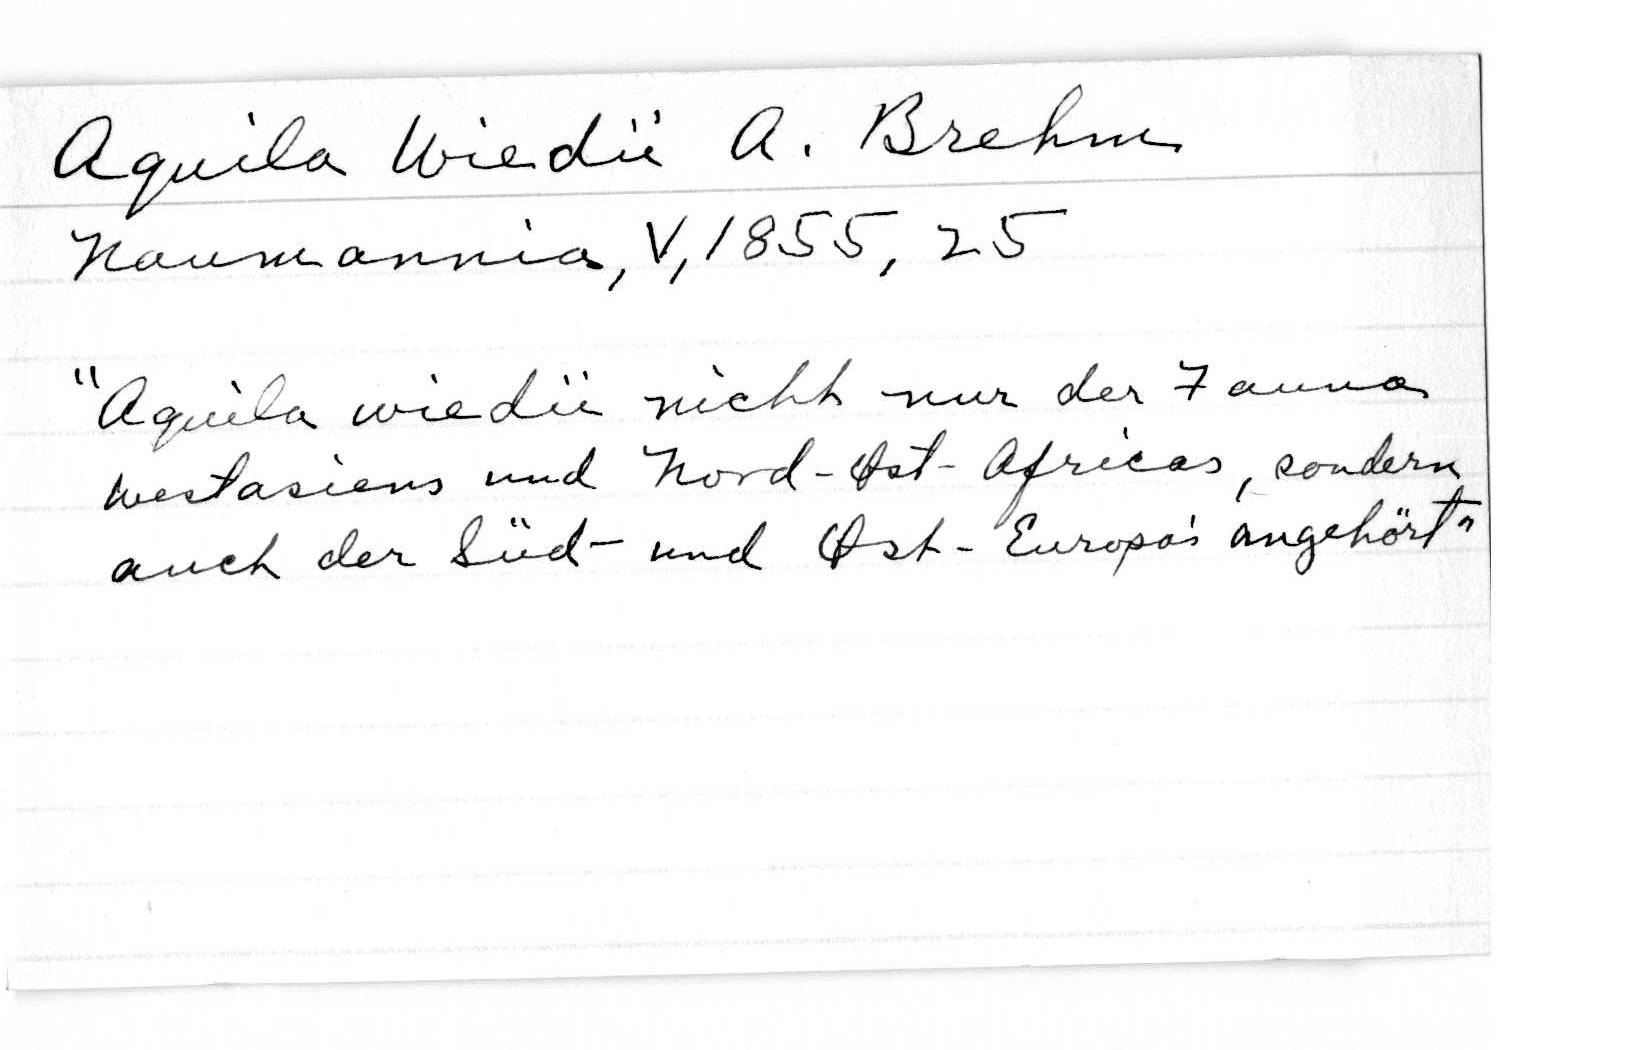 Aquila Wiedii A. Brehm
Naumannia, V, 1855, 25
"Aquila wiedii nicht nur der Fauna
westasiens und Nord-Ost-Africas, sondern
auch der Süd- und Ost-Europa's angehört"